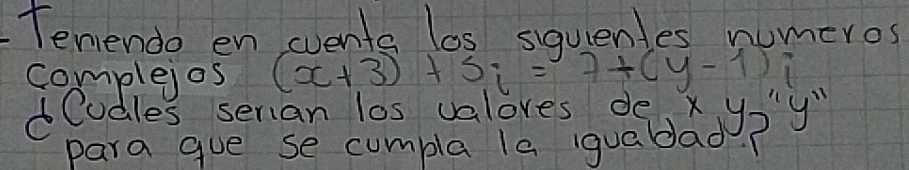 - Teniendo en cuenta los siguientes numeros
complejos (x+3) + 5i = 7+(y-1)i
¿Cuáles serian los valores de x y "y"
para que se cumpla la igualdad?